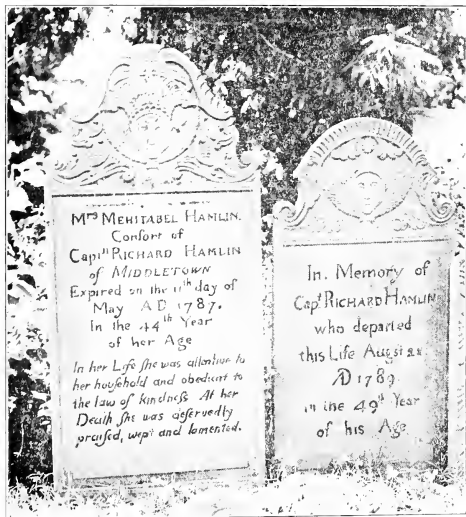 Mrs MEHITABEL HAMLIN.
Confort of
Captn RICHARD HAMLIN
of MIDDLETOWN
Expired on the 11th day of
May AD 1787.
In the 44th Year
of her Age
In her Life ſhe was attentive to
her houſehold and obedient to
the law of kindneſs At her
Death ſhe was deſervedly
praiſed, wept and lamented.
In Memory of
Capt RICHARD HAMLIN
who departed
this Life Augst 22
AD 1789
in the 49th Year
of his Age